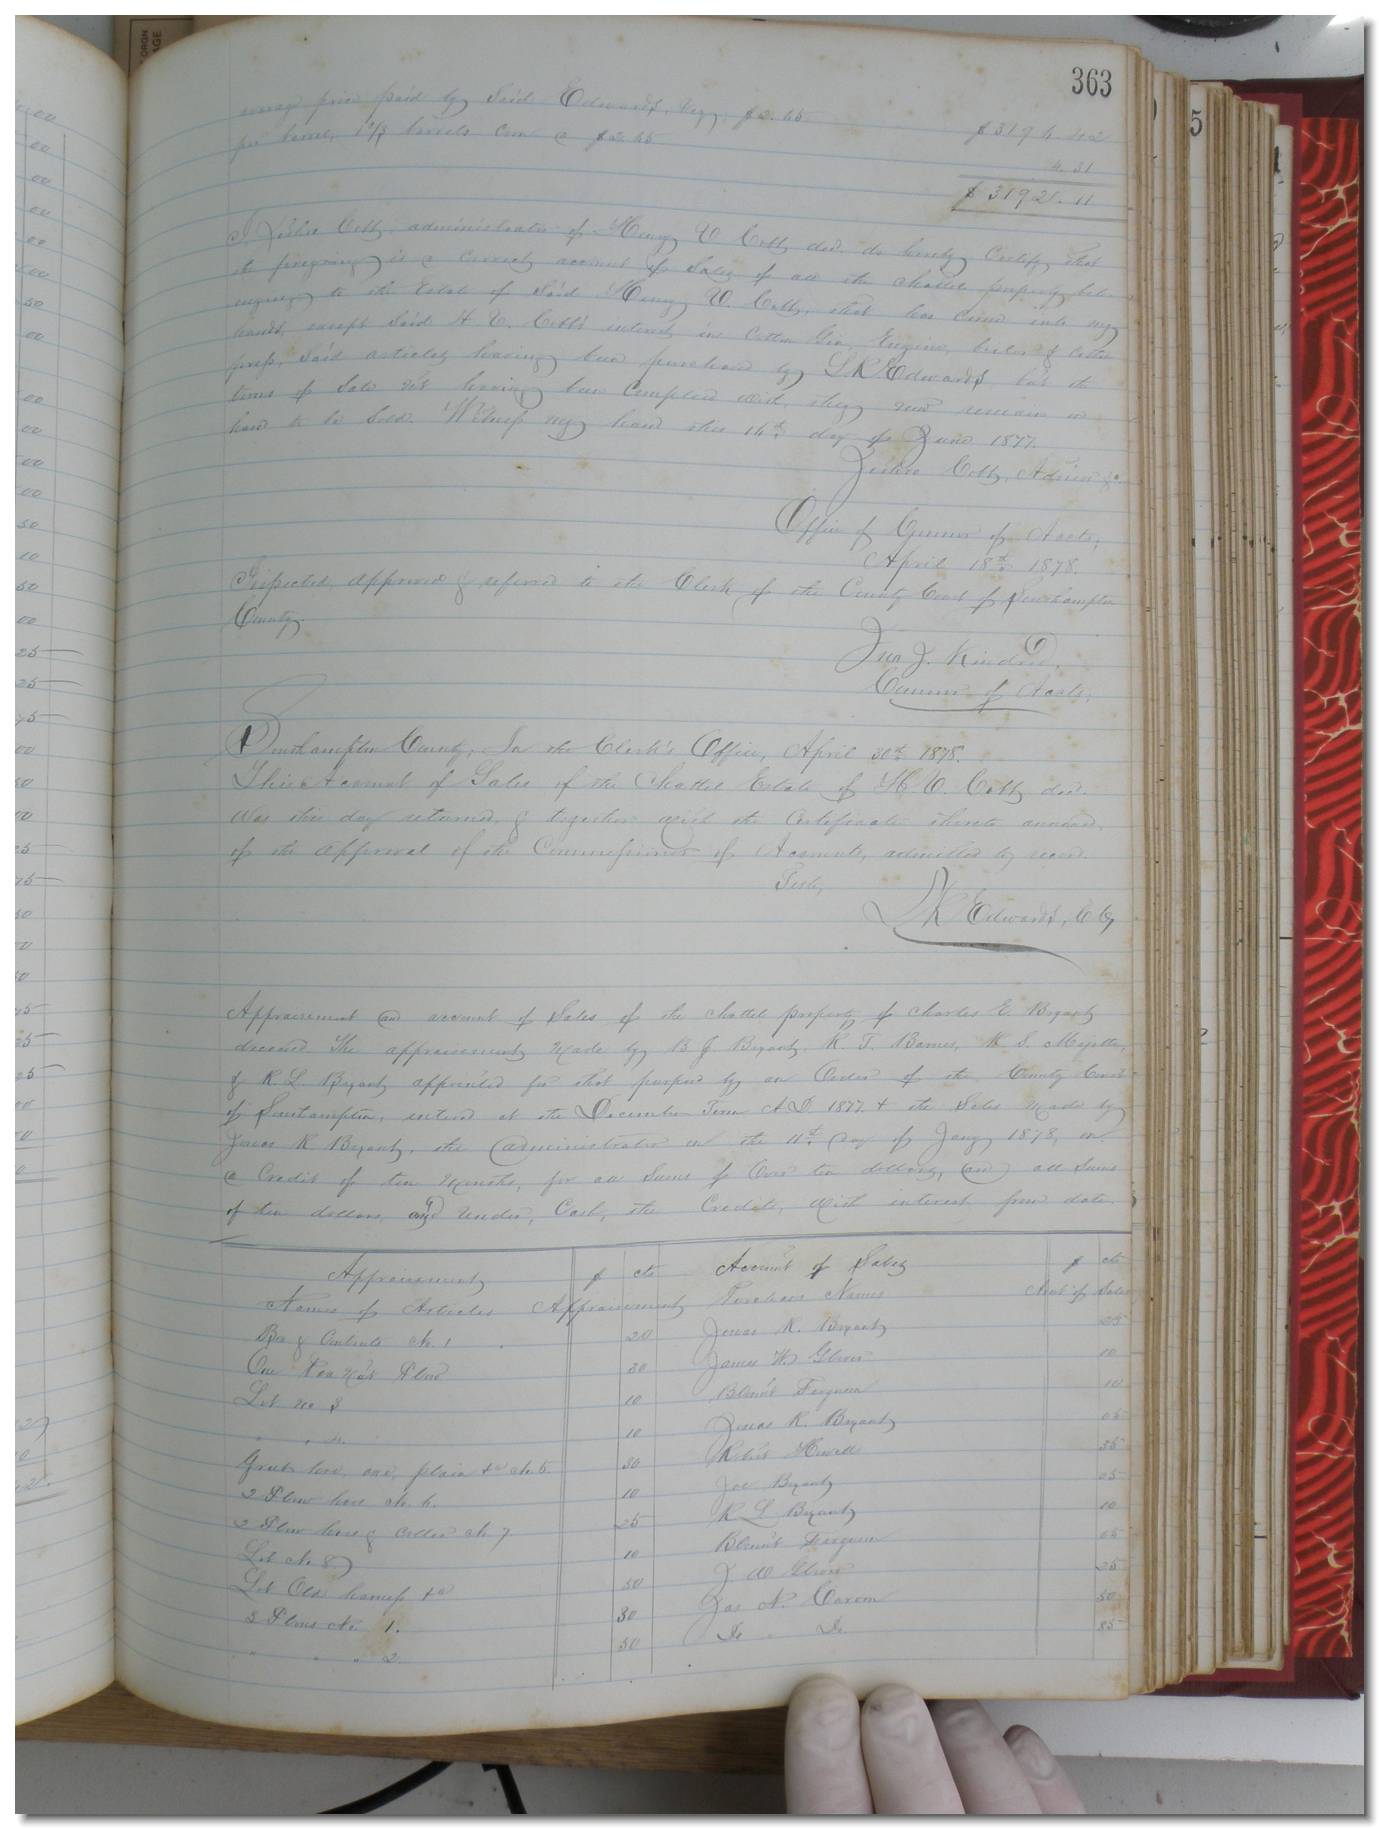 363
average price paid by Said Edwards, Viz, $2.65
per barrel, barrels Corn @ $2.65
4.31
$
I, Cobb, administrator of Henry V. Cobb decd. do hereby Certify that
foregoing is a Correct account of Sales of all the chattel property belo-
nging to the Estate of Said Henry V. Cobb, that has Come into my
hands, except Said H. V. Cobb's interest in Cotton Gin, Engine, boiler & Cotton
press, Said articles having been purchased by L R Edwards but the
terms of Sale not having been Complied with, they now remain on
hand to be Sold. Witness my hand this 14th day of June 1877.
Cobb, Admr &c.
Office of Commr of Accts,
April 18th 1878.
Inspected, approved & referred to the Clerk of the County Court of Southampton
County.
Jno J. Kindred,
Commr of Accts,
Southampton County, In the Clerk's Office, April 30th 1878.
This Account of Sales of the Chattel Estate of H. V. Cobb decd.
Was this day returned, & together with the Certificate thereto annexed,
of the approval of the Commissioner of Accounts, admitted to record.
Teste,
L R Edwards, C C
Appraisement and account of Sales of the chattel property of Charles E. Bryant
deceased. The appraisement Made by B J Bryant, R. T. Barnes, W. S. Majette,
& R. L. Bryant appointed for that purpose by an Order of the County Court
of Southampton, entered at the December Term A.D. 1877 & the Sales Made by
James R. Bryant, the administrator on the 11th day of Jany 1878, on
a Credit of ten Months, for all Sums of Over ten dollars, and all Sums
of ten dollars, and Under, Cash, the Credits, With interest from date.
Appraisement $ cts Account of Sales $ cts
Names of Articles Appraisement Purchasers Names Amt of Sales
Box & Contents No. 1 20 James R. Bryant 25
One Pea Nut Plow 30 James W. Glover 10
Lot No 3 10 Ferguson 10
" " 4. 10 James R. Bryant 05
Grub hoe, axe, plain &c No. 5. 30 Robert Howell 35
2 Plow hoes No. 6. 10 Joe Bryant 05
2 Plow hoes & Cutter No 7 25 R L Bryant 10
Lot No. 8 10 Ferguson 05
Lot Old harness &c 50 J W Glover 25
3 Plows No. 1. 30 Jas N. 50
" " " 2. 50 Do " Do 85